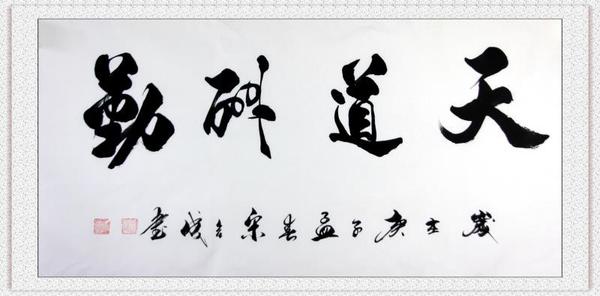 天道酬勤
歲在庚子孟春宋成書